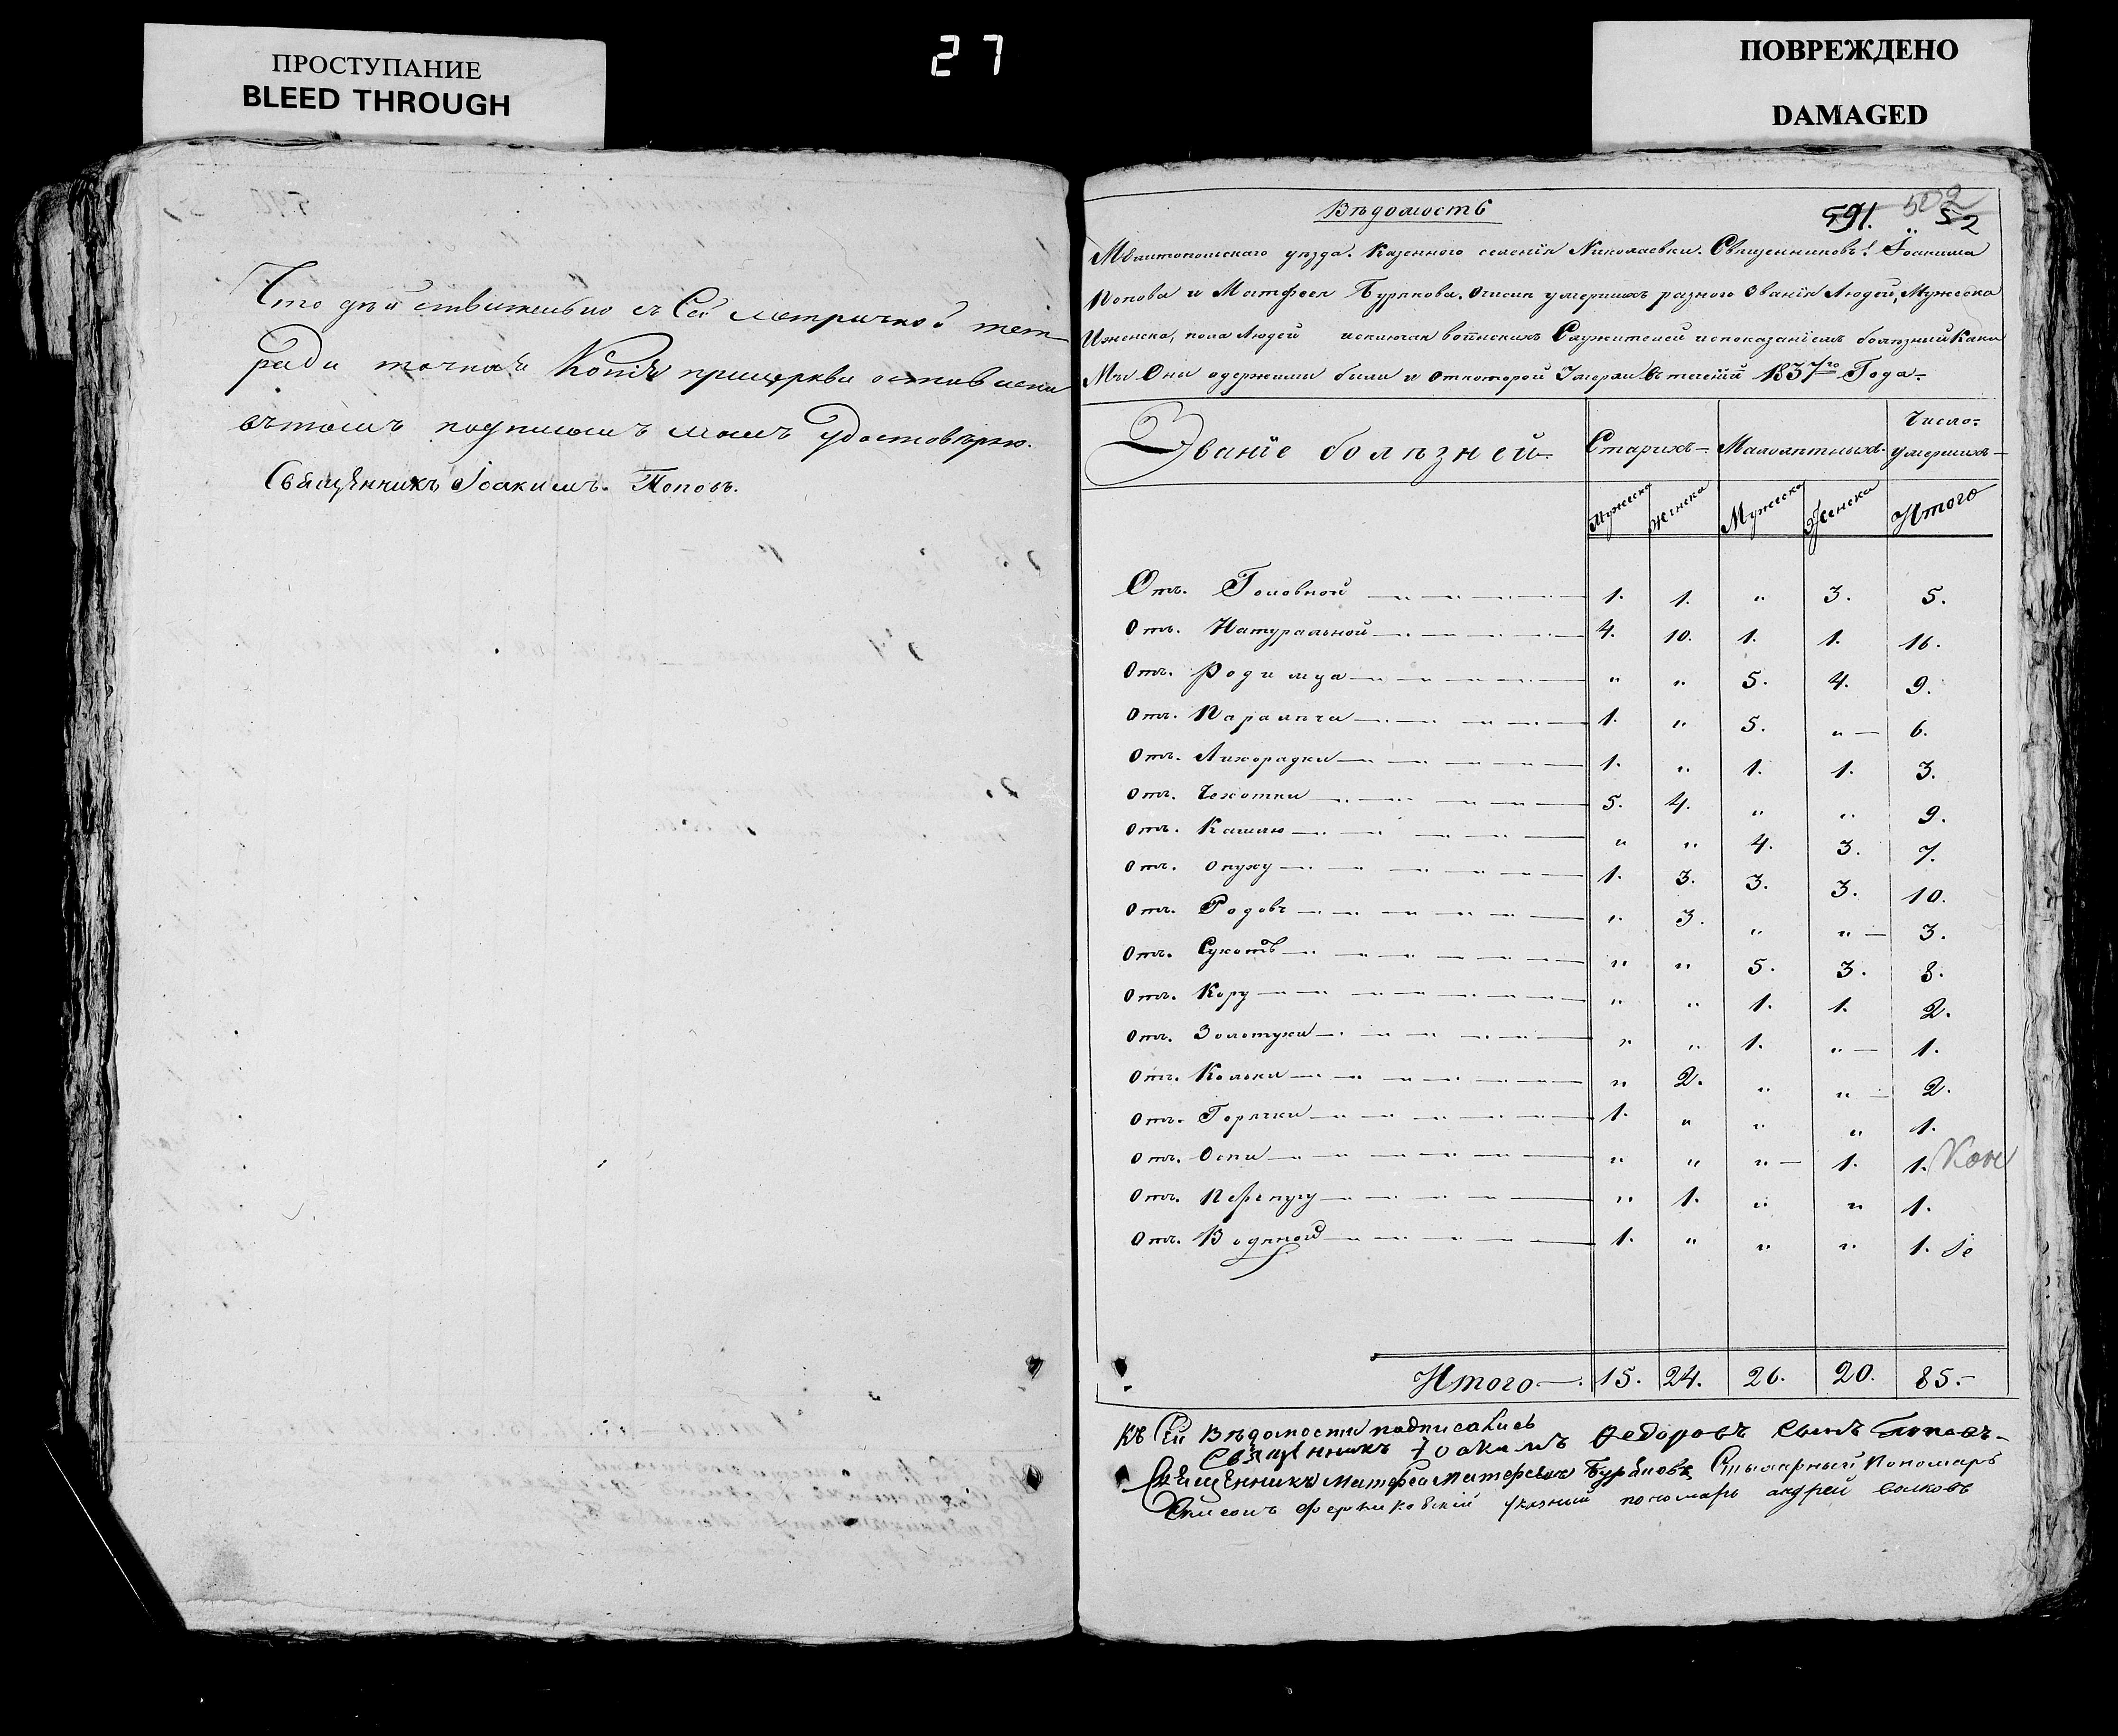 ПРОСТУПАНИЕ
BLEED THROUGH
27
ПОВРЕЖДЕНО
DAMAGED
Что дѣйствительно съ Сей метричной тет
ради точная Копія прицеркви оставлена
вътомъ подписомъ моимъ удостовѣряю.
Свящѣнникъ Іоакимъ Поповъ.
Вѣдомость
591. 502 52
Мелитопольскаго уѣзда. Казенного селенія Николаевки. Священниковъ: Іоакима
Попова и Матфея Бурякова. Очисли умершихъ разного званія Людей, Мужеска
Иженска, пола Людей исключая воинскихъ Служителей испоказаніемъ болѣзній Каки
Мы Они одержими были и откоторой Умерли Въ теченіи 1837го Года.
Званіе болѣзней Старихъ Малолѣтныхъ Число умершихъ
Мужеска Женска Мужеска Женска Итого
Отъ. Головной 1. 1. " 3. 5.
Отъ. Натуральной 4. 10. 1. 1. 16.
Отъ. Родимца " " 5. 4. 9.
Отъ. Паралича 1. " 5. " 6.
Отъ. Лихорадки 1. " 1. 1. 3.
Отъ. Чехотки 5. 4. " " 9.
Отъ. Кашлю " " 4. 3. 7.
Отъ. Опуху 1. 3. 3. 3. 10.
Отъ. Родовъ " 3. " " 3.
Отъ. Сухотъ " " 5. 3. 8.
Отъ. Кору " " 1. 1. 2.
Отъ. Золотухи " " 1. " 1.
Отъ. Кольки " 2. " " 2.
Отъ. Горячки 1. " " " 1.
Отъ. Оспи " " " 1. 1.
Отъ. Перепугу " 1. " " 1.
Отъ. Водяной 1. " " " 1.
Итого 15. 24. 26. 20. 85.
Къ Сей Вѣдомости подписались
Свящѣнникъ Іоакимъ Федоровъ Сынъ Поповъ
Свящѣнникъ Матфей Матфеевъ Буряковъ Стихарный Пономарь
указний пономарь андрей волковъ